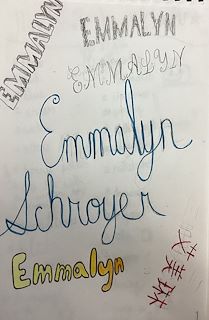 EMMALYN
EMMALYN
EMMALYN
Emmalyn
Schroyer
Emmalyn